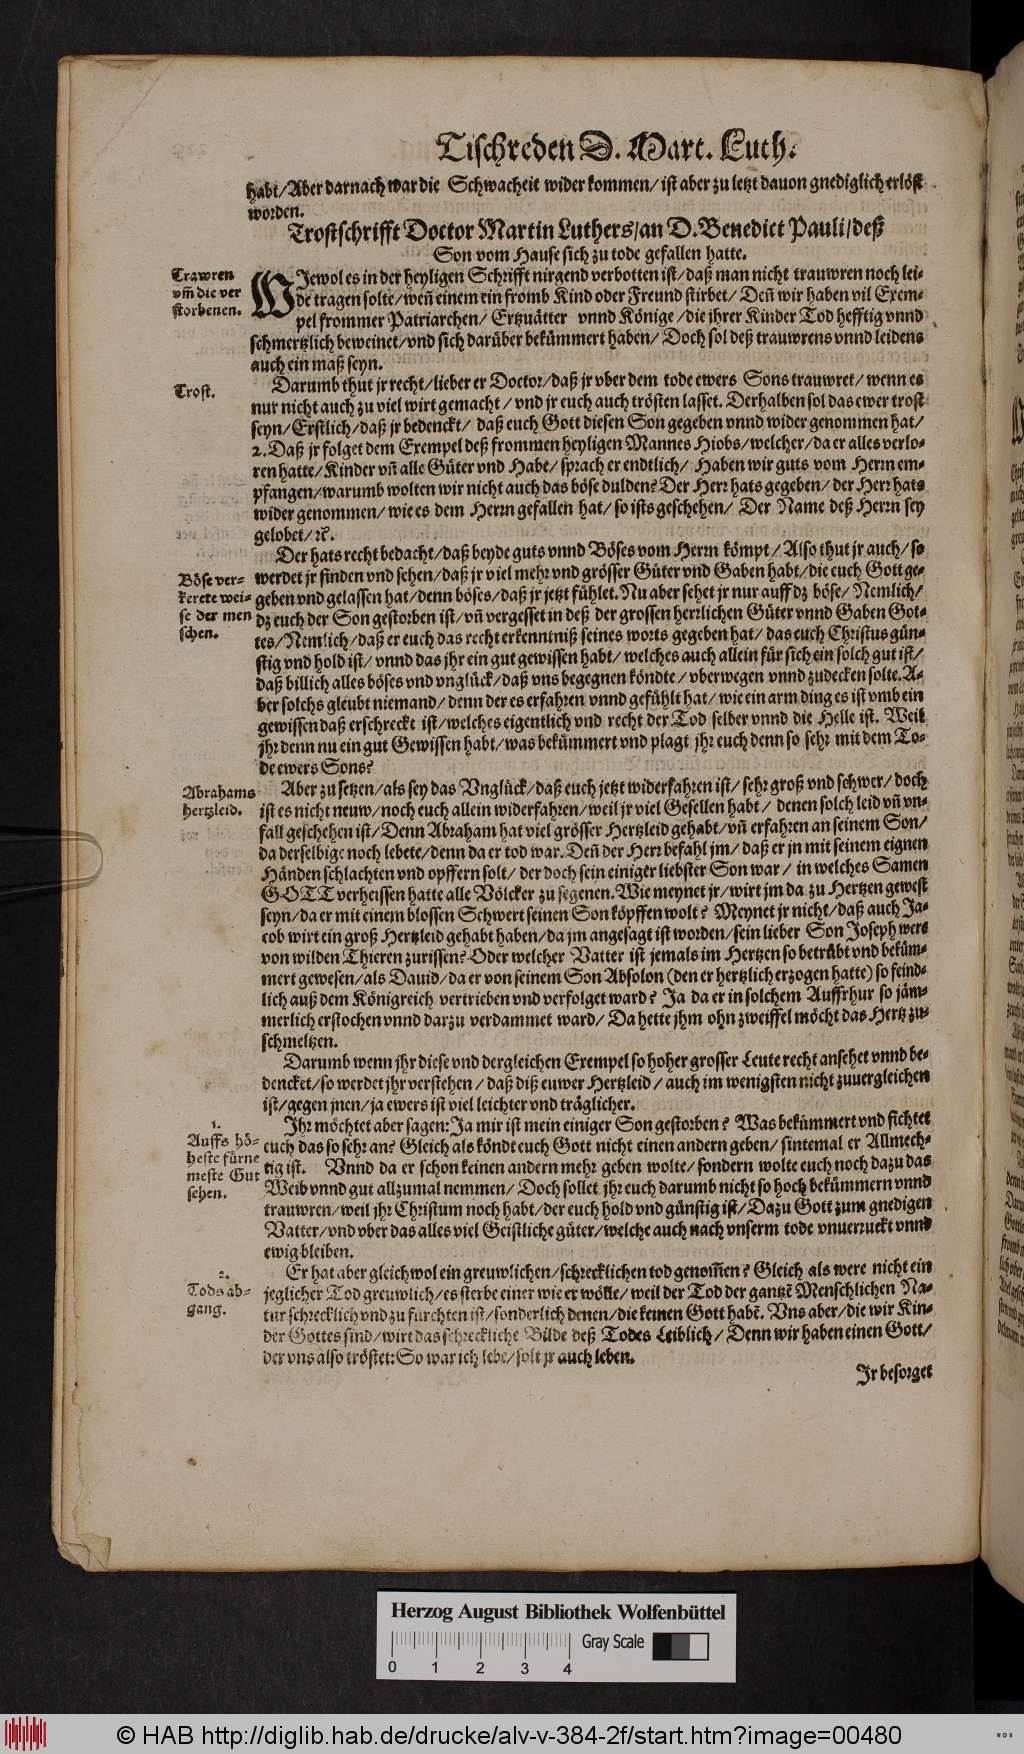 Tischreden D. Mart. Luth.
habt/Aber darnach war die Schwacheit wider kommen/ist aber zu letzt dauon gnediglich erlöst
worden.
Trostschrifft Doctor Martin Luthers/an D. Benedict Pauli/deß
Son vom Hause sich zu tode gefallen hatte.
Trawren
vm̃ die ver
storbenen.
WJewol es in der heyligen Schrifft nirgend verbotten ist/daß man nicht trauwren noch lei-
de tragen solte/weñ einem ein fromb Kind oder Freund stirbet/Deñ wir haben vil Exem-
pel frommer Patriarchen/Ertzuätter vnnd Könige/die jhrer Kinder Tod hefftig vnnd
schmertzlich beweinet/vnd sich darüber bekümmert haben/Doch sol deß trauwrens vnnd leidens
auch ein maß seyn.
Trost.
Darumb thut jr recht/lieber er Doctor/daß jr vber dem tode ewers Sons trauwret/wenn es
nur nicht auch zu viel wirt gemacht/vnd jr euch auch trösten lasset. Derhalben sol das ewer trost
seyn/Erstlich/daß jr bedenckt/daß euch Gott diesen Son gegeben vnnd wider genommen hat/
2. Daß jr folget dem Exempel deß frommen heyligen Mannes Hiobs/welcher/da er alles verlo-
ren hatte/Kinder vñ alle Güter vnd Habe/sprach er endtlich/Haben wir guts vom Herrn em-
pfangen/warumb wolten wir nicht auch das böse dulden? Der Herr hats gegeben/der Herr hats
wider genommen/wie es dem Herrn gefallen hat/so ists geschehen/Der Name deß Herrn sey
gelobet/ꝛc.
Der hats recht bedacht/daß beyde guts vnnd Böses vom Herrn kömpt/Also thut jr auch/so
Böse ver-
kerete wei-
se der men
schen.
werdet jr finden vnd sehen/daß jr viel mehr vnd grösser Güter vnd Gaben habt/die euch Gott ge-
geben vnd gelassen hat/denn böses/daß jr jetzt fühlet. Nu aber sehet jr nur auff dz böse/Nemlich/
dz euch der Son gestorben ist/vñ vergesset in deß der grossen herrlichen Güter vnnd Gaben Got-
tes/Nemlich/daß er euch das recht erkenntniß seines worts gegeben hat/das euch Christus gün-
stig vnd hold ist/vnnd das jhr ein gut gewissen habt/welches auch allein für sich ein solch gut ist/
daß billich alles böses vnd vnglück/daß vns begegnen köndte/vberwegen vnnd zudecken solte. A-
ber solchs gleubt niemand/denn der es erfahren vnnd gefühlt hat/wie ein arm ding es ist vmb ein
gewissen daß erschreckt ist/welches eigentlich vnd recht der Tod selber vnnd die Helle ist. Weil
jhr denn nu ein gut Gewissen habt/was bekümmert vnd plagt jhr euch denn so sehr mit dem To-
de ewers Sons?
Abrahams
hertzleid.
Aber zu setzen/als sey das Vnglück/daß euch jetzt widerfahren ist/sehr groß vnd schwer/doch
ist es nicht neuw/noch euch allein widerfahren/weil jr viel Gesellen habt/denen solch leid vñ vn-
fall geschehen ist/Denn Abraham hat viel grösser Hertzleid gehabt/vñ erfahren an seinem Son/
da derselbige noch lebete/denn da er tod war. Deñ der Herr befahl jm/daß er jn mit seinem eignen
Händen schlachten vnd opffern solt/der doch sein einiger liebster Son war/in welches Samen
GOTT verheissen hatte alle Völcker zu segenen. Wie meynet jr/wirt jm da zu Hertzen gewest
seyn/da er mit einem blossen Schwert seinen Son köpffen wolt? Meynet jr nicht/daß auch Ja-
cob wirt ein groß Hertzleid gehabt haben/da jm angesagt ist worden/sein lieber Son Joseph were
von wilden Thieren zurissen? Oder welcher Vatter ist jemals im Hertzen so betrübt vnd beküm-
mert gewesen/als Dauid/da er von seinem Son Absolon (den er hertzlich erzogen hatte) so feind-
lich auß dem Königreich vertrieben vnd verfolget ward? Ja da er in solchem Auffrhur so jäm-
merlich erstochen vnnd darzu verdammet ward/Da hette jhm ohn zweiffel möcht das Hertz zu-
schmeltzen.
Darumb wenn jhr diese vnd dergleichen Exempel so hoher grosser Leute recht ansehet vnnd be-
dencket/so werdet jhr verstehen/daß diß euwer Hertzleid/auch im wenigsten nicht zuuergleichen
ist/gegen jnen/ja ewers ist viel leichter vnd träglicher.
1.
Auffs hö-
heste fürne
meste Gut
sehen.
Jhr möchtet aber sagen: Ja mir ist mein einiger Son gestorben? Was bekümmert vnd fichtet
euch das so sehr an? Gleich als köndt euch Gott nicht einen andern geben/sintemal er Allmech-
tig ist. Vnnd da er schon keinen andern mehr geben wolte/sondern wolte euch noch dazu das
Weib vnnd gut allzumal nemmen/Doch sollet jhr euch darumb nicht so hoch bekümmern vnnd
trauwren/weil jhr Christum noch habt/der euch hold vnd günstig ist/Dazu Gott zum gnedigen
Vatter/vnd vber das alles viel Geistliche güter/welche auch nach vnserm tode vnuerruckt vnnd
ewig bleiben.
2.
Tods ab-
gang.
Er hat aber gleichwol ein greuwlichen/schrecklichen tod genom̃en? Gleich als were nicht ein
jeglicher Tod greuwlich/es sterbe einer wie er wölle/weil der Tod der gantzẽ Menschlichen Na-
tur schrecklich vnd zu fürchten ist/sonderlich denen/die keinen Gott habẽ. Vns aber/die wir Kin-
der Gottes sind/wirt das schreckliche Bilde deß Todes Leiblich/Denn wir haben einen Gott/
der vns also tröstet: So war ich lebe/solt jr auch leben.
Jr besorget
Herzog August Bibliothek Wolfenbüttel
Gray Scale
0 1 2 3 4
© HAB http://diglib.hab.de/drucke/alv-v-384-2f/start.htm?image=00480